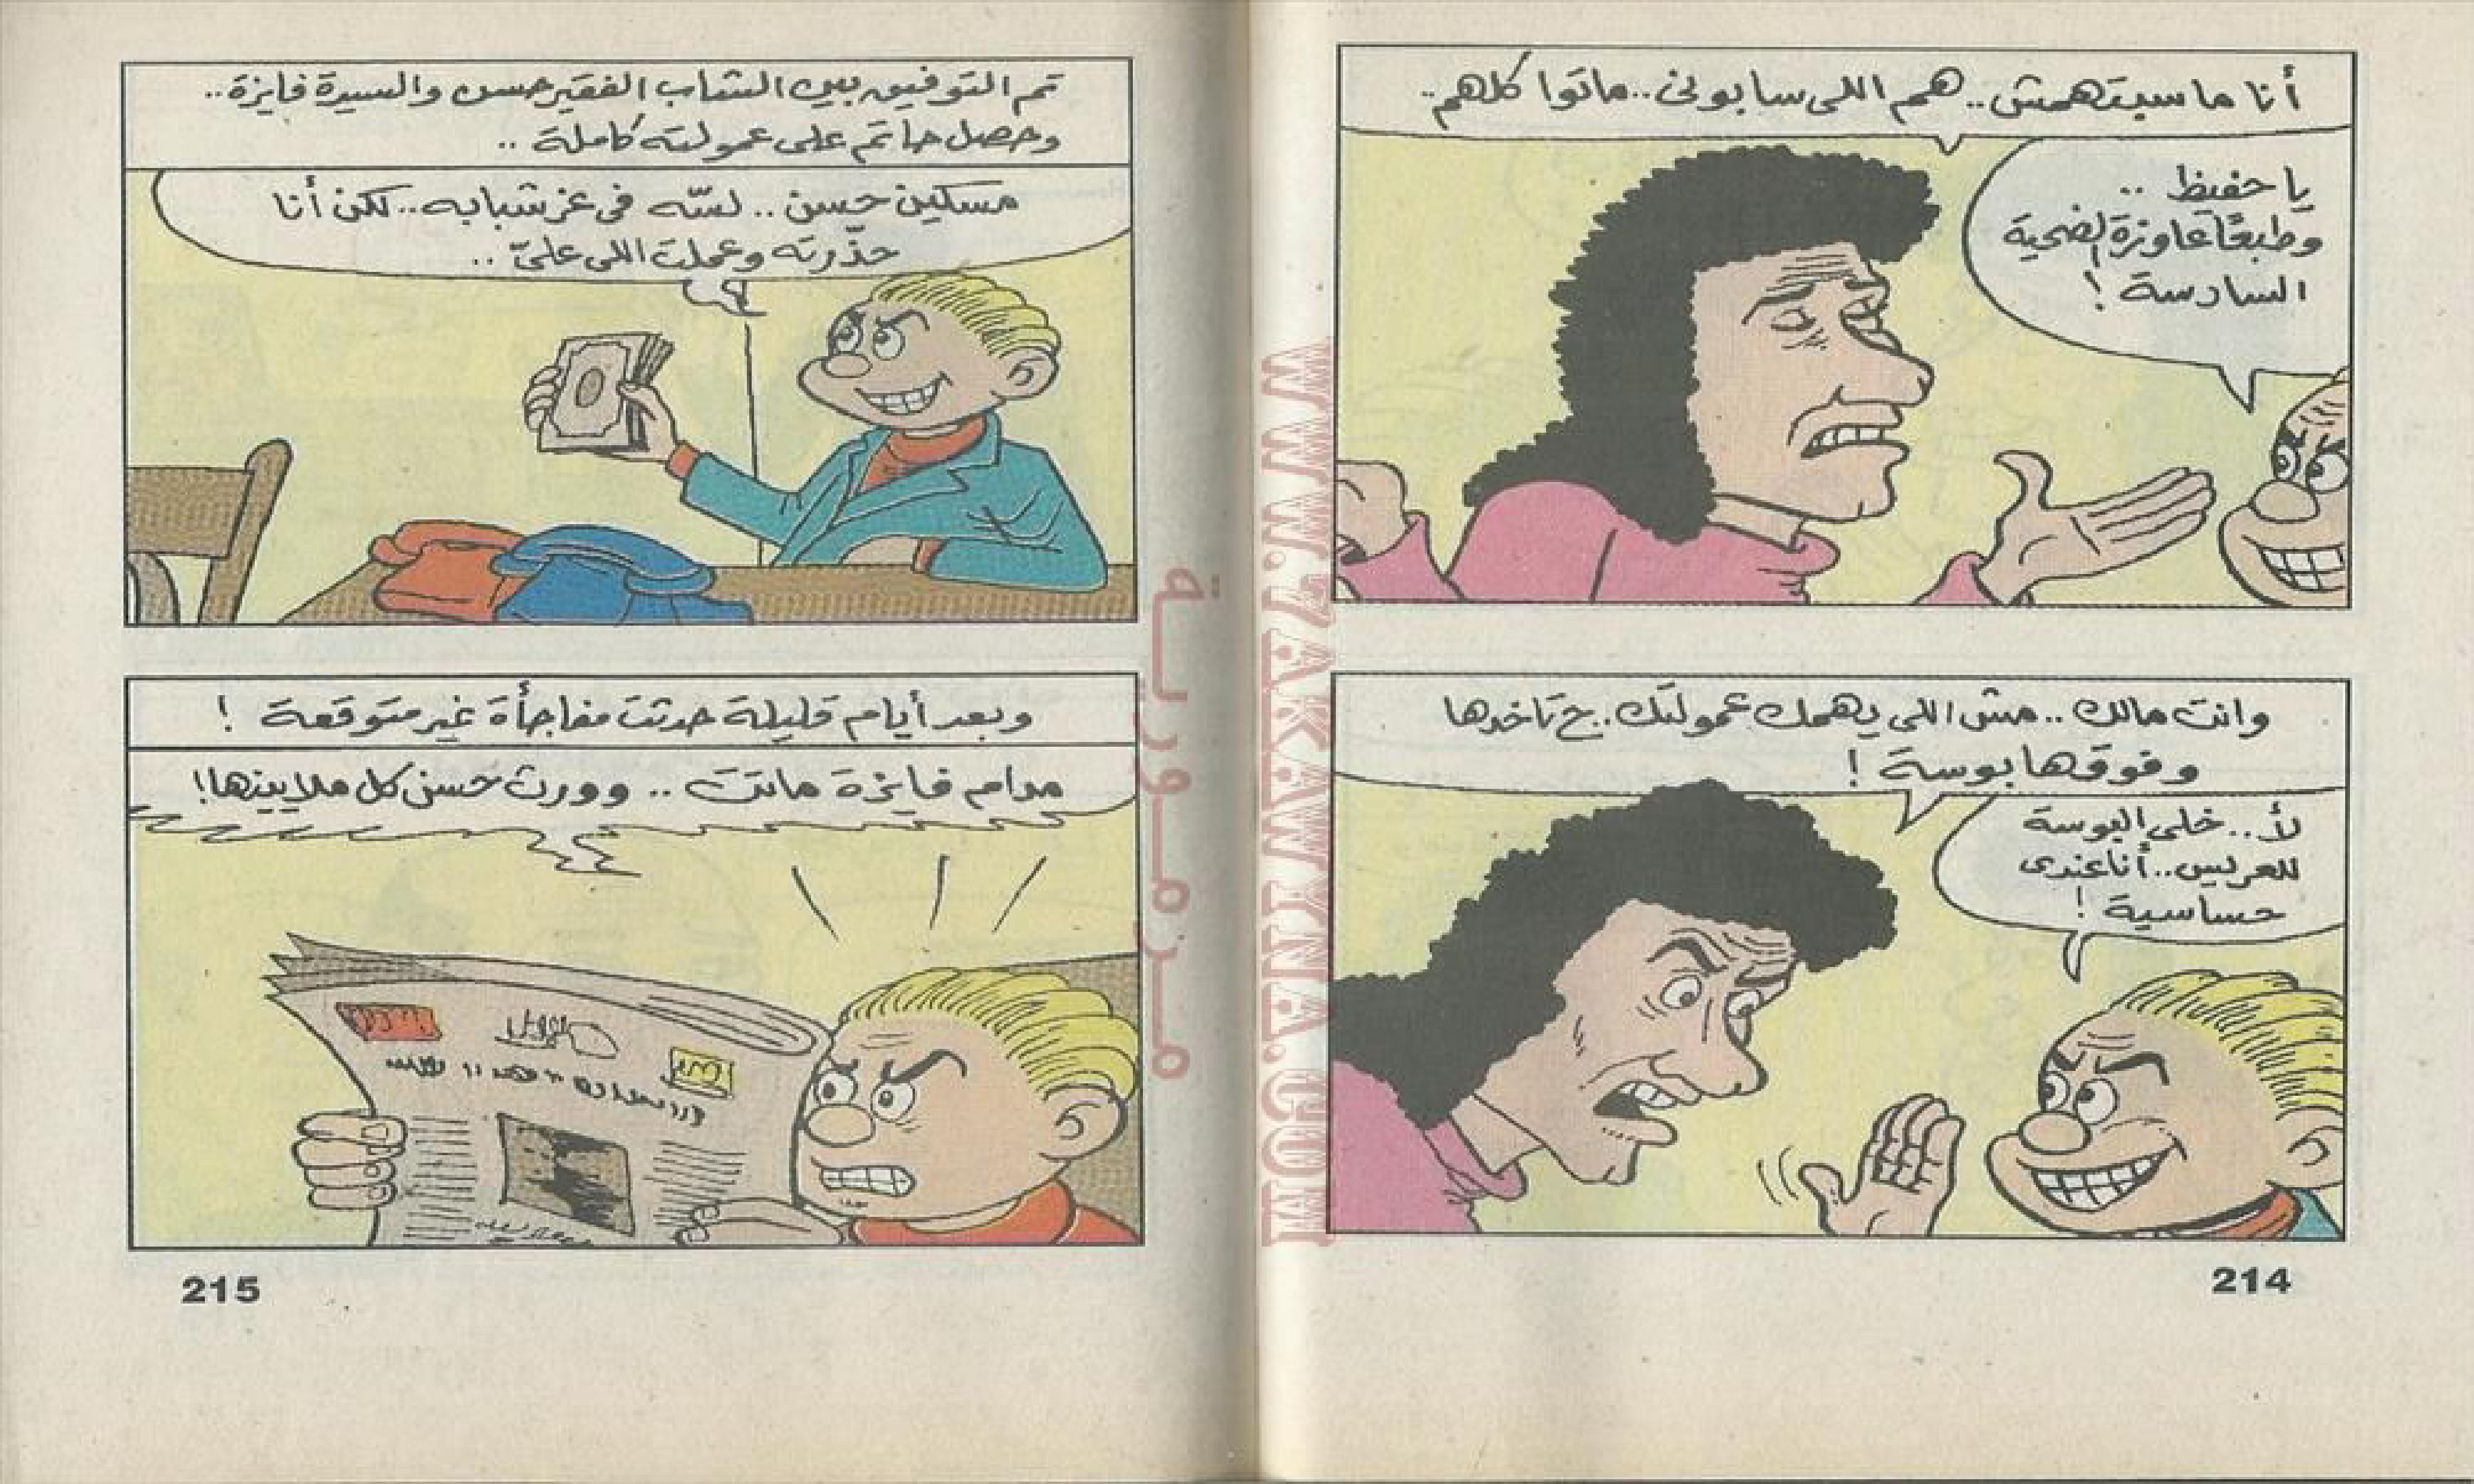 أنا ما سبتهمش.. هم اللى سابونى.. ماتوا كلهم..
يا حفيظ ..
وطبعًا عاوزة الضحية
السادسة !
وانت مالك.. مش اللى يهمك عمولتك.. ح تاخدها
وفوقها بوسة !
لأ... خلى البوسة
للعريس.. أنا عندى
حساسية !
214
تم التوفيق بين الشاب الفقير حسن والسيدة فايزة..
وحصل حاتم على عمولته كاملة ..
مسكين حسن .. لسّه فى عز شبابه.. لكن أنا
حذّرته وعملت اللى علىّ ..
وبعد أيام قليلة حدثت مفاجأة غير متوقعة !
مدام فايزة ماتت .. وورث حسن كل ملايينها !
215
WWW.7AKAWKINA.COM